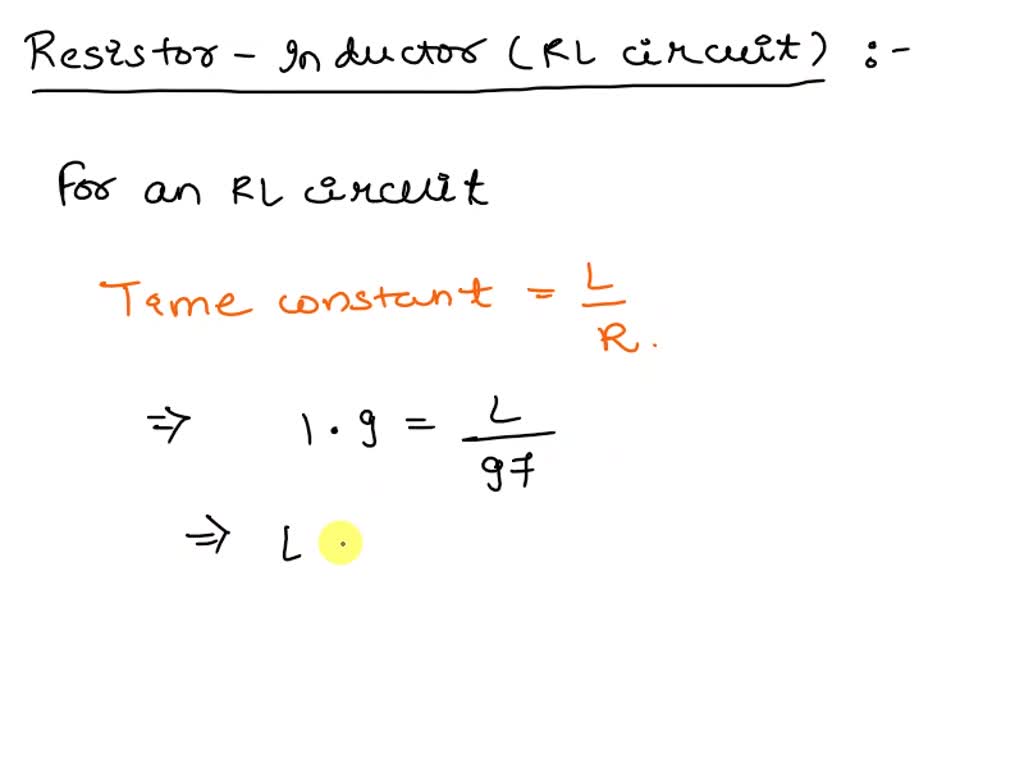 Resistor - Inductor (RL circuit) :-
For an RL circuit
Time constant = L/R.
⇒ 1.9 = L/97
⇒ L